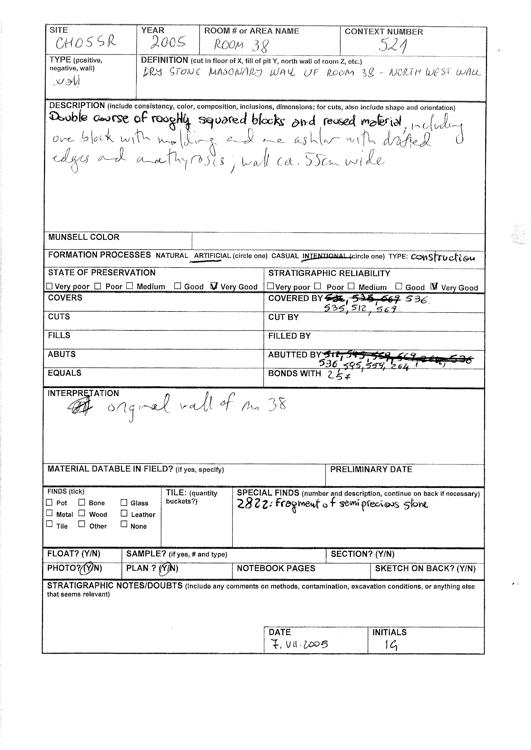 SITE YEAR ROOM # or AREA NAME CONTEXT NUMBER
CHO5SR 2005 ROOM 38 521
TYPE (positive, negative, wall) DEFINITION (cut in floor of X, fill of pit Y, north wall of room Z, etc.)
wall DRY STONE MASONARY WALL OF ROOM 38 - NORTH WEST WALL
DESCRIPTION (include consistency, color, composition, inclusions, dimensions; for cuts, also include shape and orientation)
Double course of roughly squared blocks and reused material, including
one block with molding and one ashlar with drafted
edges and anathyrosis; wall ca. 55cm wide
MUNSELL COLOR
FORMATION PROCESSES NATURAL ARTIFICIAL (circle one) CASUAL INTENTIONAL (circle one) TYPE: construction
STATE OF PRESERVATION STRATIGRAPHIC RELIABILITY
Very poor Poor Medium Good Very Good Very poor Poor Medium Good Very Good
COVERS COVERED BY 536
535, 512, 569
CUTS CUT BY
FILLS FILLED BY
ABUTS ABUTTED BY
536, 595, 559, 264
EQUALS BONDS WITH 257
INTERPRETATION
original wall of rm 38
MATERIAL DATABLE IN FIELD? (if yes, specify) PRELIMINARY DATE
FINDS (tick) TILE: (quantity buckets?) SPECIAL FINDS (number and description, continue on back if necessary)
Pot Bone Glass 2822: Fragment of semiprecious stone
Metal Wood Leather
Tile Other None
FLOAT? (Y/N) SAMPLE? (if yes, # and type) SECTION? (Y/N)
PHOTO? (Y/N) PLAN ? (Y/N) NOTEBOOK PAGES SKETCH ON BACK? (Y/N)
STRATIGRAPHIC NOTES/DOUBTS (Include any comments on methods, contamination, excavation conditions, or anything else
that seems relevant)
DATE INITIALS
7. VII. 2005 IG